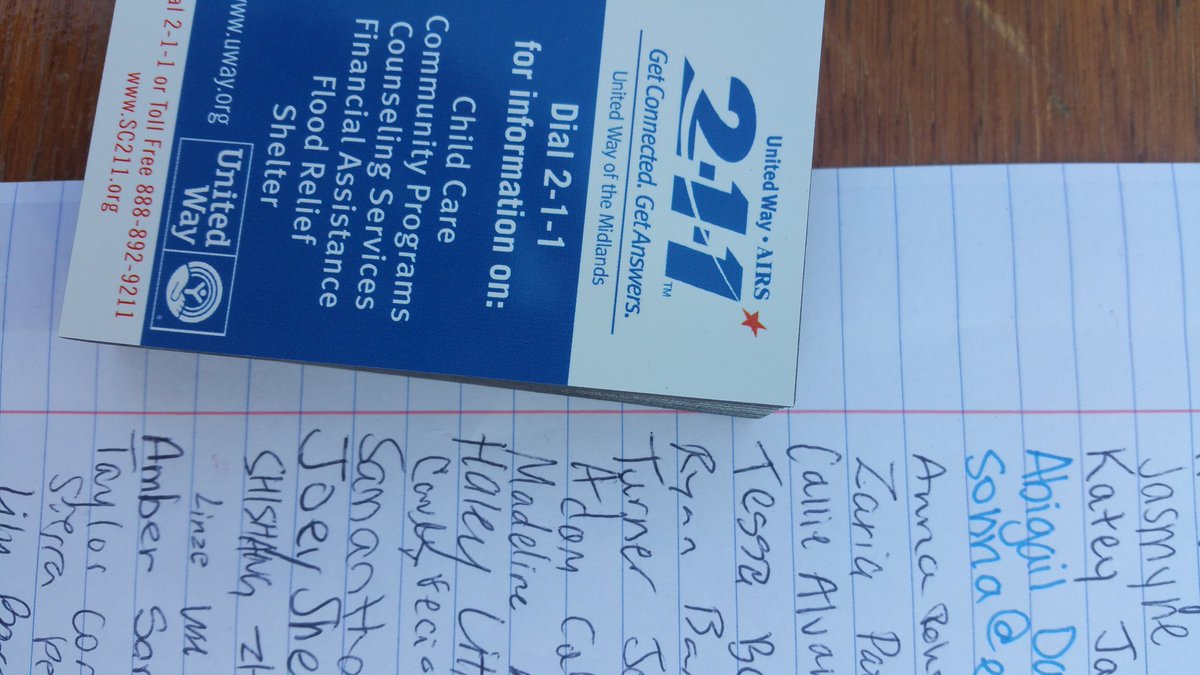 United Way • AIRS
2-1-1™
Get Connected. Get Answers.
United Way of the Midlands
Dial 2-1-1
for information on:
Child Care
Community Programs
Counseling Services
Financial Assistance
Flood Relief
Shelter
www.uway.org
United
Way
al 2-1-1 or Toll Free 888-892-9211
www.SC211.org
Jasmyne
Katey Ja
Abigail Da
Somna@e
Anna
Zaria Pa
Callie Alva
Tessa B
Ryan Ba
Turner
Adon Ca
Madeline
Haley Lit
Samantha
Joey She
SHISHANG Zh
Linze
Amber San
Taylor Cor
Sherra